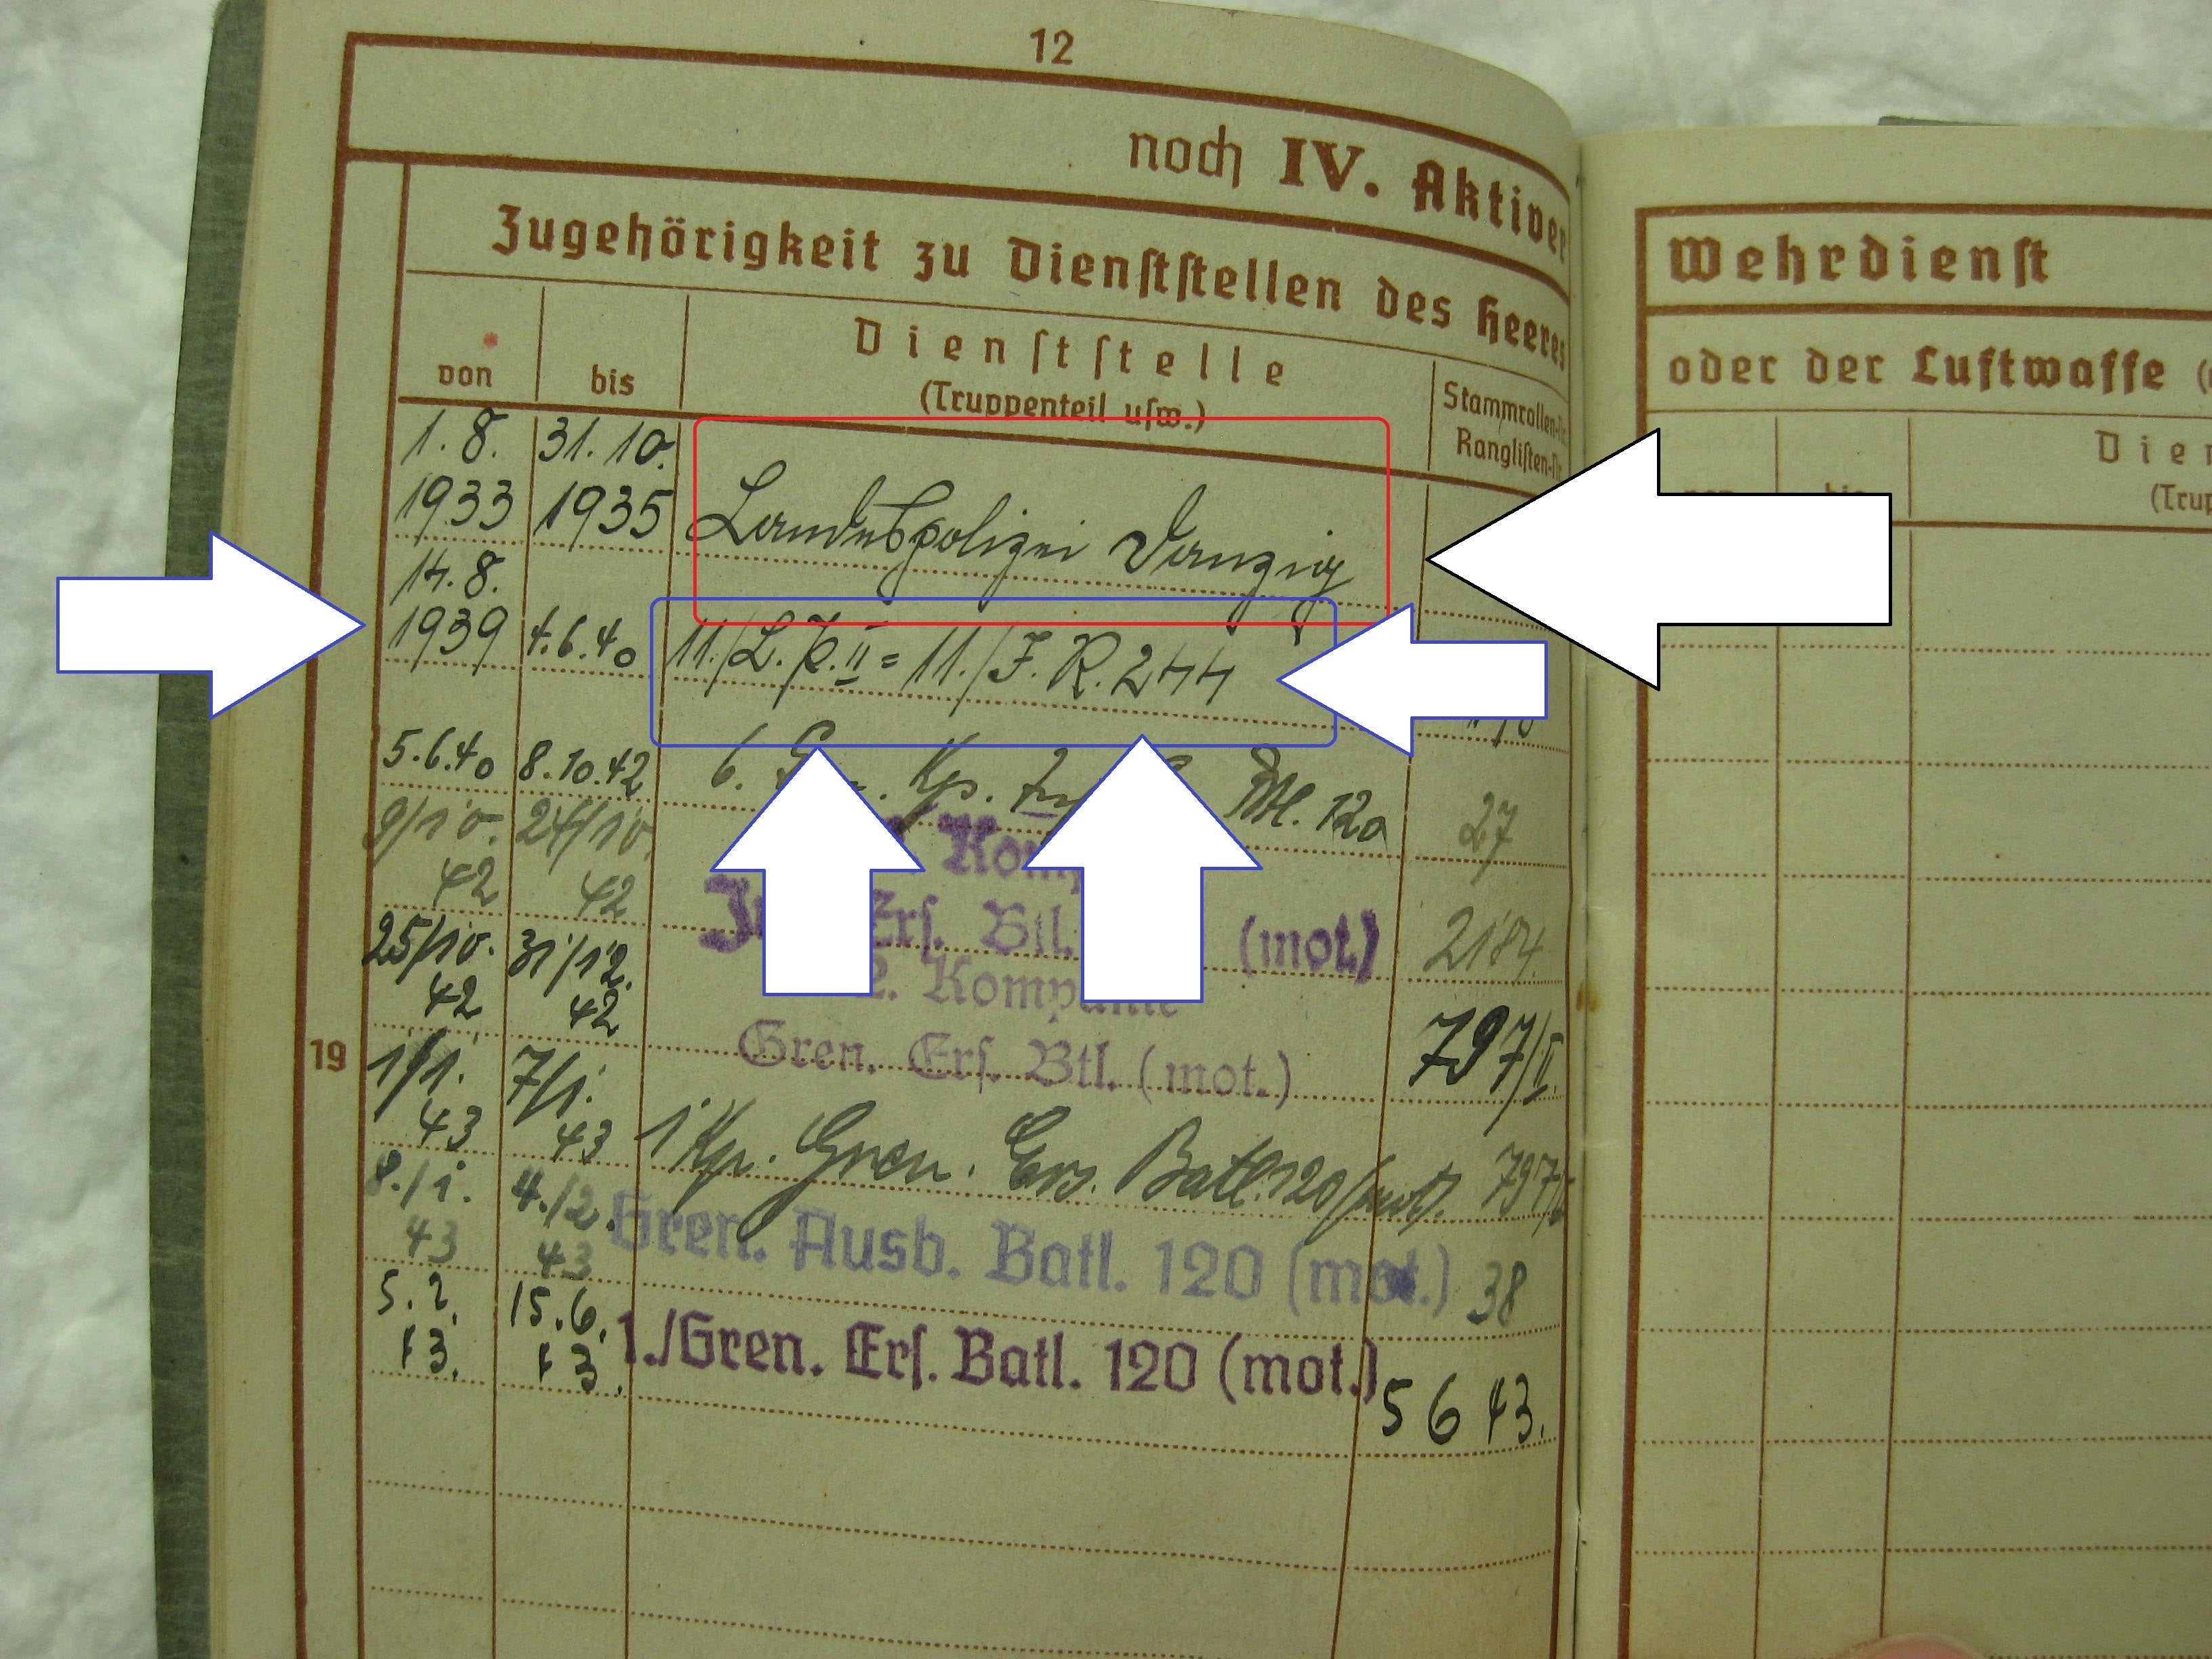 12
noch IV. Aktiver
Zugehörigkeit zu Dienststellen des Heeres
von bis Dienststelle
(Truppenteil usw.)
Stammrollen-Nr.
Ranglisten-Nr.
1.8. 31.10.
1933 1935 Landespolizei Danzig
14.8.
1939 4.6.40 11./L.P.II = 11./J.R.244
5.6.40 8.10.42 6. Kp. Btl. 120 27
9/10. 24/10.
42 42
Ers. Btl. (mot.) 2184
25/10. 31/12. 2. Kompanie
42 42 Gren. Ers. Btl. (mot.) 797/II.
19
1/1. 7/1.
43 43 1 Kp. Gren. Ers. Batl. 120 (mot). 797/II
8./1. 4./2.
43 43 Gren. Ausb. Batl. 120 (mot.) 38
5.2. 15.6.
43. 43. 1./Gren. Ers. Batl. 120 (mot.) 5643.
Wehrdienst
oder der Luftwaffe